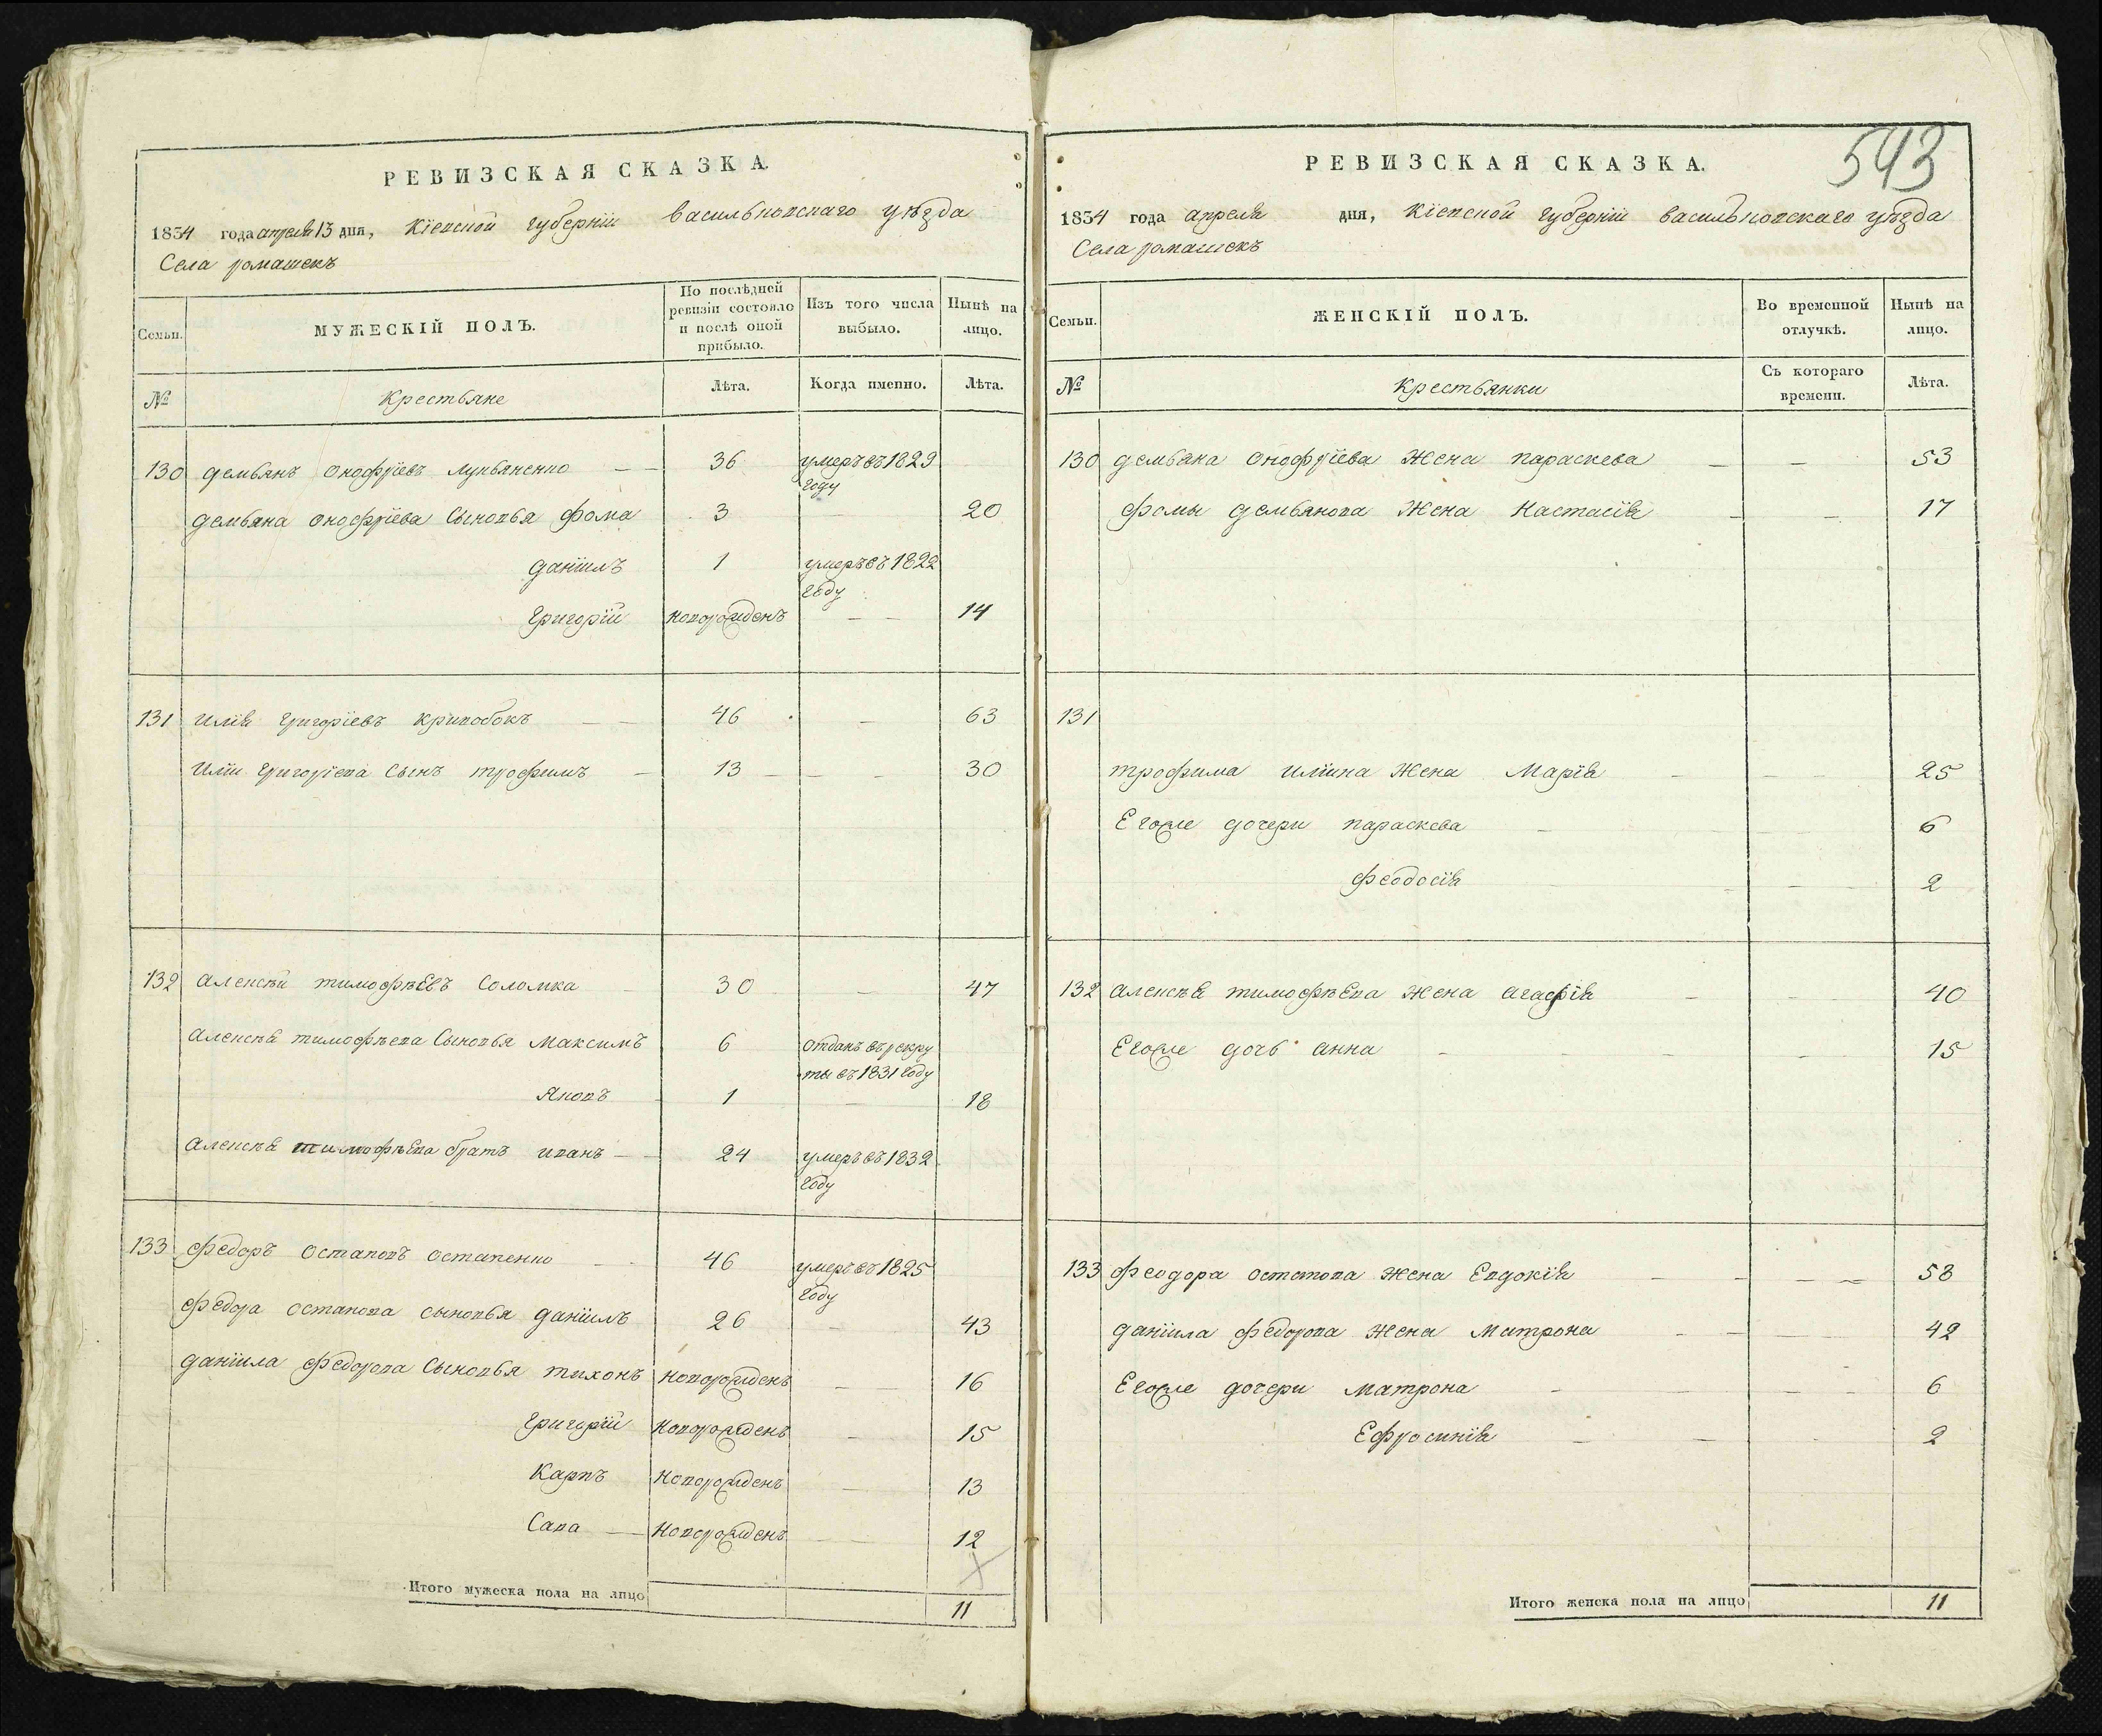 РЕВИЗСКАЯ СКАЗКА.
1834 года апреля 13 дня, Кіевской губерніи васильковскаго уѣзда
Села ромашекъ
Семьи.
МУЖЕСКІЙ ПОЛЪ.
По послѣдней ревизіи состояло и послѣ оной прибыло.
Изъ того числа выбыло.
Нынѣ на лицо.
№
Крестьяне
Лѣта.
Когда именно.
Лѣта.
130 демьянъ онофріевъ лукьяненко — 36 умеръ въ 1829 году
демьяна онофріева сыновья фома 3 — 20
даніилъ 1 умеръ въ 1822 году
григорій новорожденъ — 14
131 илія григоріевъ кривобокъ — 46 — 63
иліи григоріева сынъ трофимъ — 13 — 30
132 алексѣй тимофѣевъ соломка 30 — 47
алексѣя тимофѣева сыновья максимъ 6 отданъ въ рекруты въ 1831 году
яковъ 1 — 18
алексѣя тимофѣева братъ иванъ — 24 умеръ въ 1832 году
133 федоръ остаповъ остапенко — 46 умеръ въ 1825 году
федора остапова сыновья даніилъ 26 — 43
даніила федорова сыновья тихонъ новорожденъ — 16
григорій новорожденъ — 15
Карпъ новорожденъ — 13
Сава — новорожденъ — 12
Итого мужеска пола на лицо 11
543
РЕВИЗСКАЯ СКАЗКА.
1834 года апреля дня, Кіевской губерніи васильковскаго уѣзда
Села ромашекъ
Семьи.
ЖЕНСКІЙ ПОЛЪ.
Во временной отлучкѣ.
Нынѣ на лицо.
№
Крестьянки
Съ котораго времени.
Лѣта.
130 демьяна онофріева жена параскева — — 53
фомы демьянова жена настасія — — 17
131
трофима иліина жена марія — — 25
Егоже дочери параскева — — 6
феодосія — — 2
132 алексѣя тимофѣева жена агафія — — 40
Егоже дочь анна — — 15
133 феодора остапова жена Евдокія — — 58
даніила федорова жена матрона — — 42
Егоже дочери матрона — — 6
Ефросинія — — 2
Итого женска пола на лицо 11